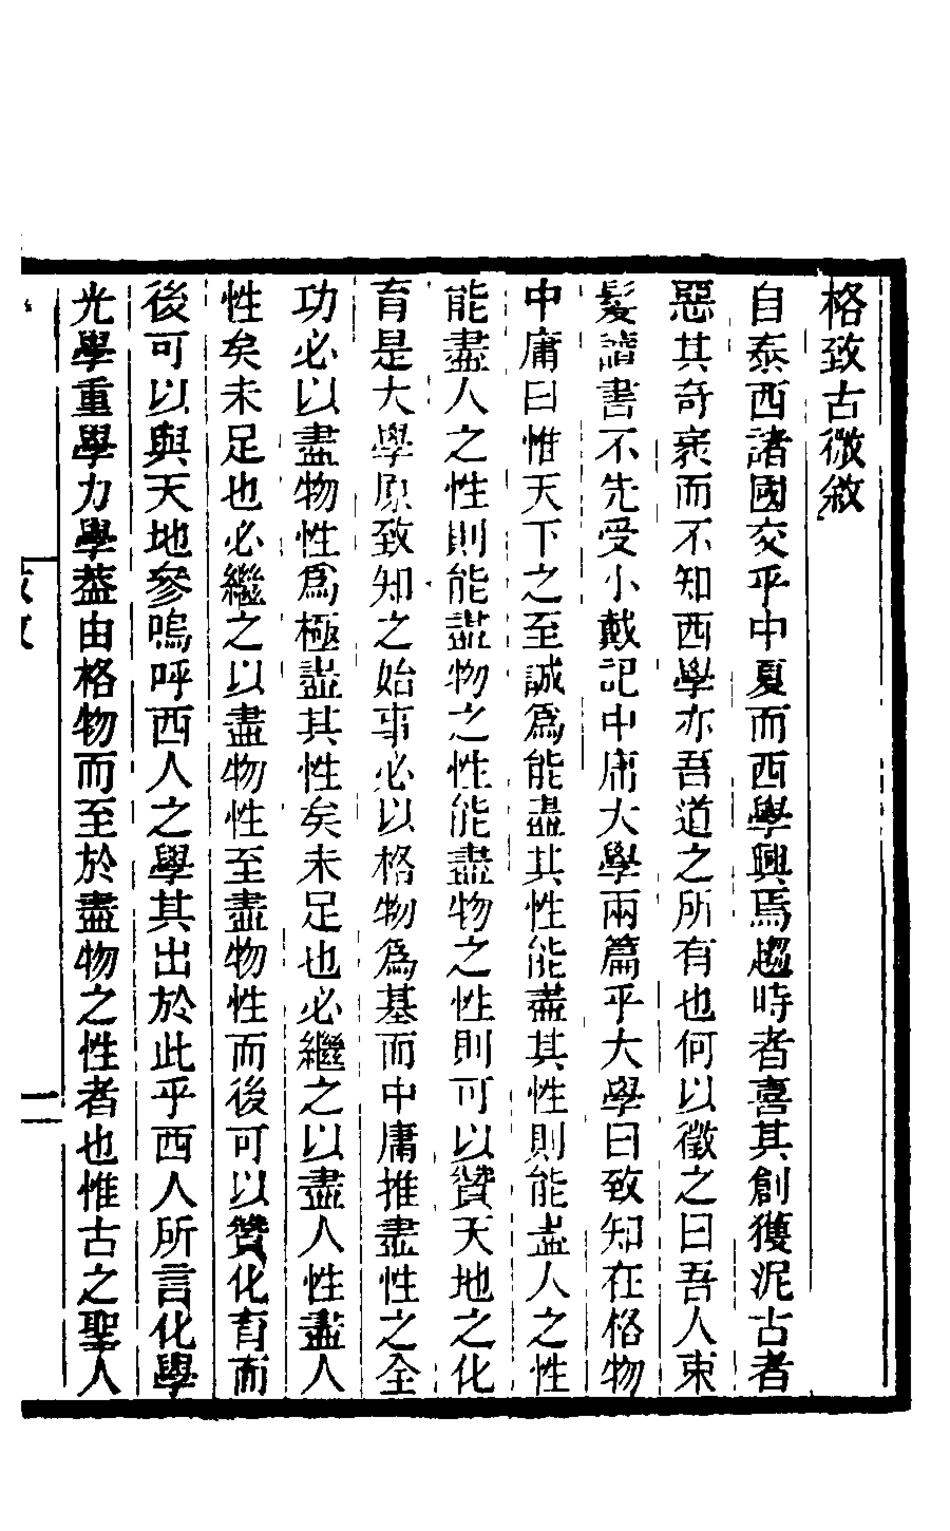 格致古微敘
自泰西諸國交乎中夏而西學興焉趨時者喜其創獲泥古者
惡其奇衺而不知西學亦吾道之所有也何以徵之曰吾人束
髮讀書不先受小戴記中庸大學兩篇乎大學曰致知在格物
中庸曰惟天下之至誠爲能盡其性能盡其性則能盡人之性
能盡人之性則能盡物之性能盡物之性則可以贊天地之化
育是大學原致知之始事必以格物爲基而中庸推盡性之全
功必以盡物性爲極盡其性矣未足也必繼之以盡人性盡人
性矣未足也必繼之以盡物性至盡物性而後可以贊化育而
後可以與天地參嗚呼西人之學其出於此乎西人所言化學
光學重學力學葢由格物而至於盡物之性者也惟古之聖人